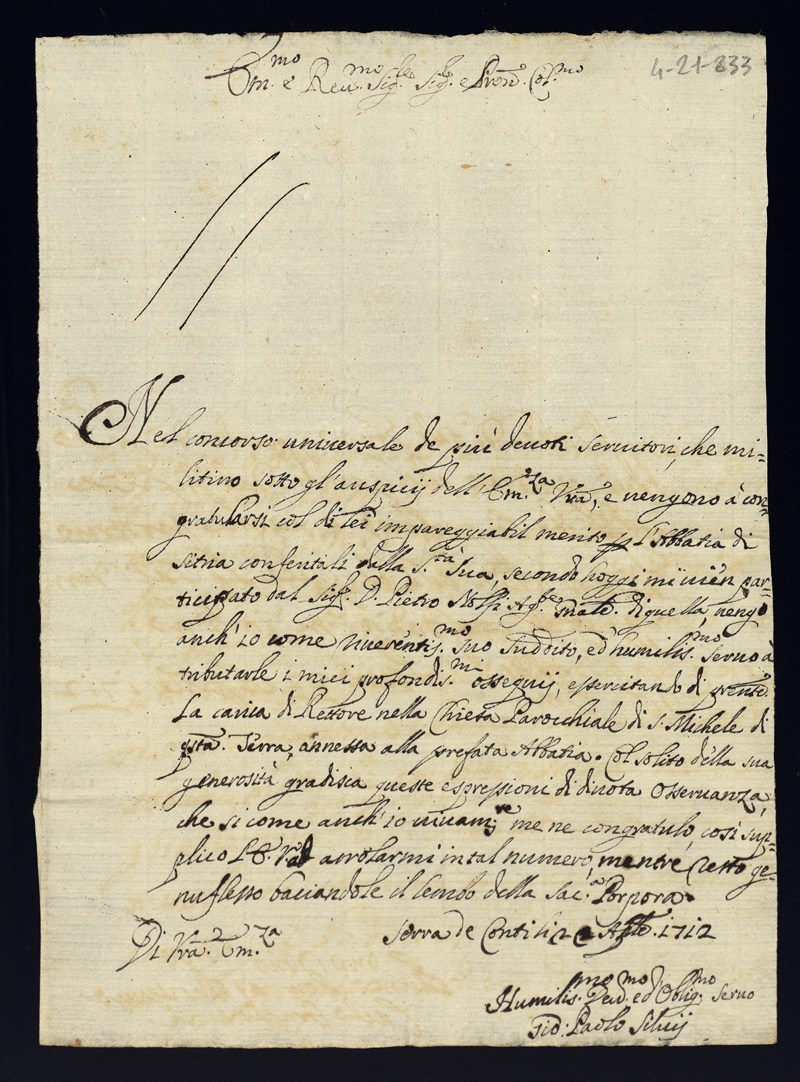 Em.mo e Reu.mo Sig.re Sig.re e Pron. Col.mo
4-21-833
Nel concorso universale de più deuoti seruitori, che mi=
litino sotto gl'auspicij dell'Em.za Vra, e uengono à con=
gratularsi col di lei impareggiabil merito p l'Abbatia di
Sitria conferitali dalla S.tà Sua, secondo hoggi mi uien par=
ticipato dal Sig.re D. Pietro di quella, uengo
anch'io come riuerentis.mo suo suddito, ed humilis.mo seruo à
tributarle i miei profondis.mi ossequij, essercitando di pnte
La carica di Rettore nella Chiesa Parocchiale di S. Michele di
qsta Terra, annessa alla prefata Abbatia. Col solito della sua
generosità gradisca queste espressioni di diuota osseruanza,
che si come anch'io uiuam.te me ne congratulo, così sup=
plico L'E. V. ad arrolarmi in tal numero, mentre resto ge=
nuflesso baciandole il lembo della Sac.a Porpora.
Di Vra Em.za Serra de Conti li 1712
Humilis.mo Deu.mo ed Oblig.mo seruo
Gio: Paolo Siluij